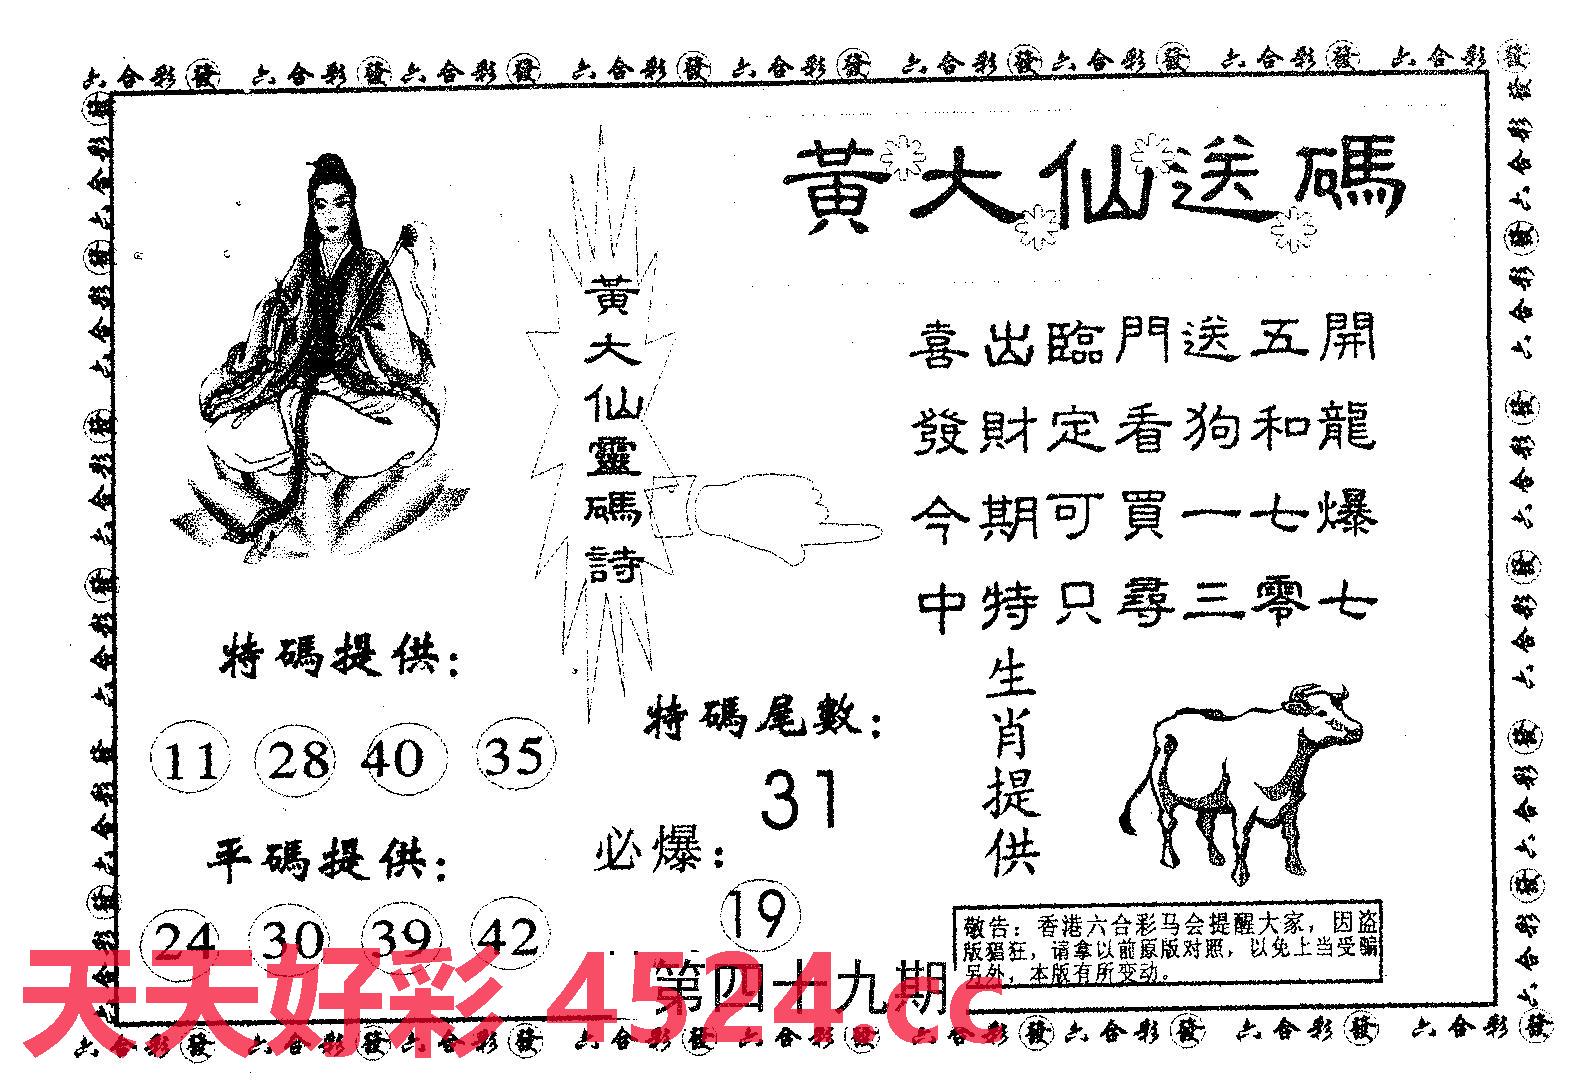 六合彩發 六合彩發六合彩發 六合彩發 六合彩發 六合彩發六合彩發 六合彩發 六合彩發
黃大仙送碼
黃大仙靈碼詩
喜出臨門送五開
發財定看狗和龍
今期可買一七爆
中特只尋三零七
特碼提供：
11 28 40 35
平碼提供：
24 30 39 42
特碼尾數：
31
必爆：
19
生肖提供
敬告：香港六合彩马会提醒大家，因盗
版猖狂，请拿以前原版对照，以免上当受骗
另外，本版有所变动。
第四十九期
天天好彩 4524.cc
六合彩發 六合彩發六合彩發 六合彩發 六合彩發 六合彩發六合彩發 六合彩發 六合彩發